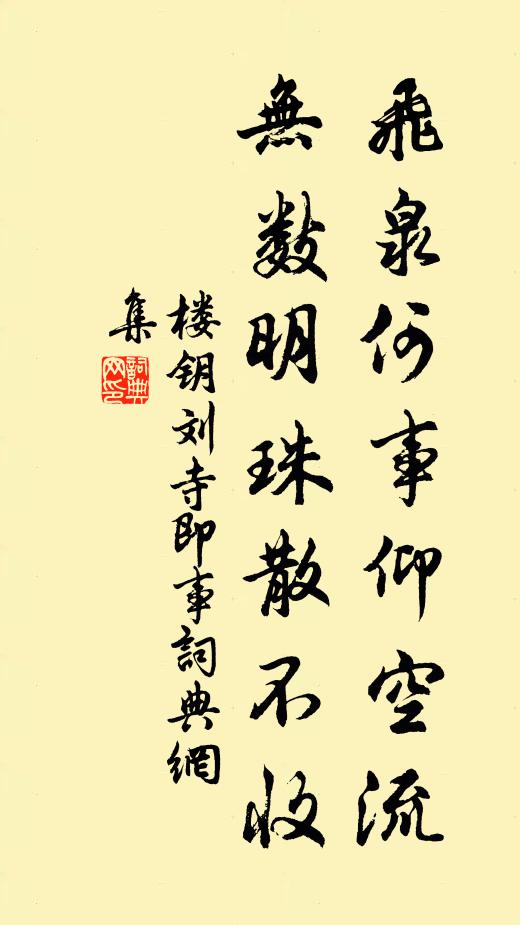 飛泉何事仰空流
無数明珠散不收
楼钥刘寺即事詞典網
集
詞典网印